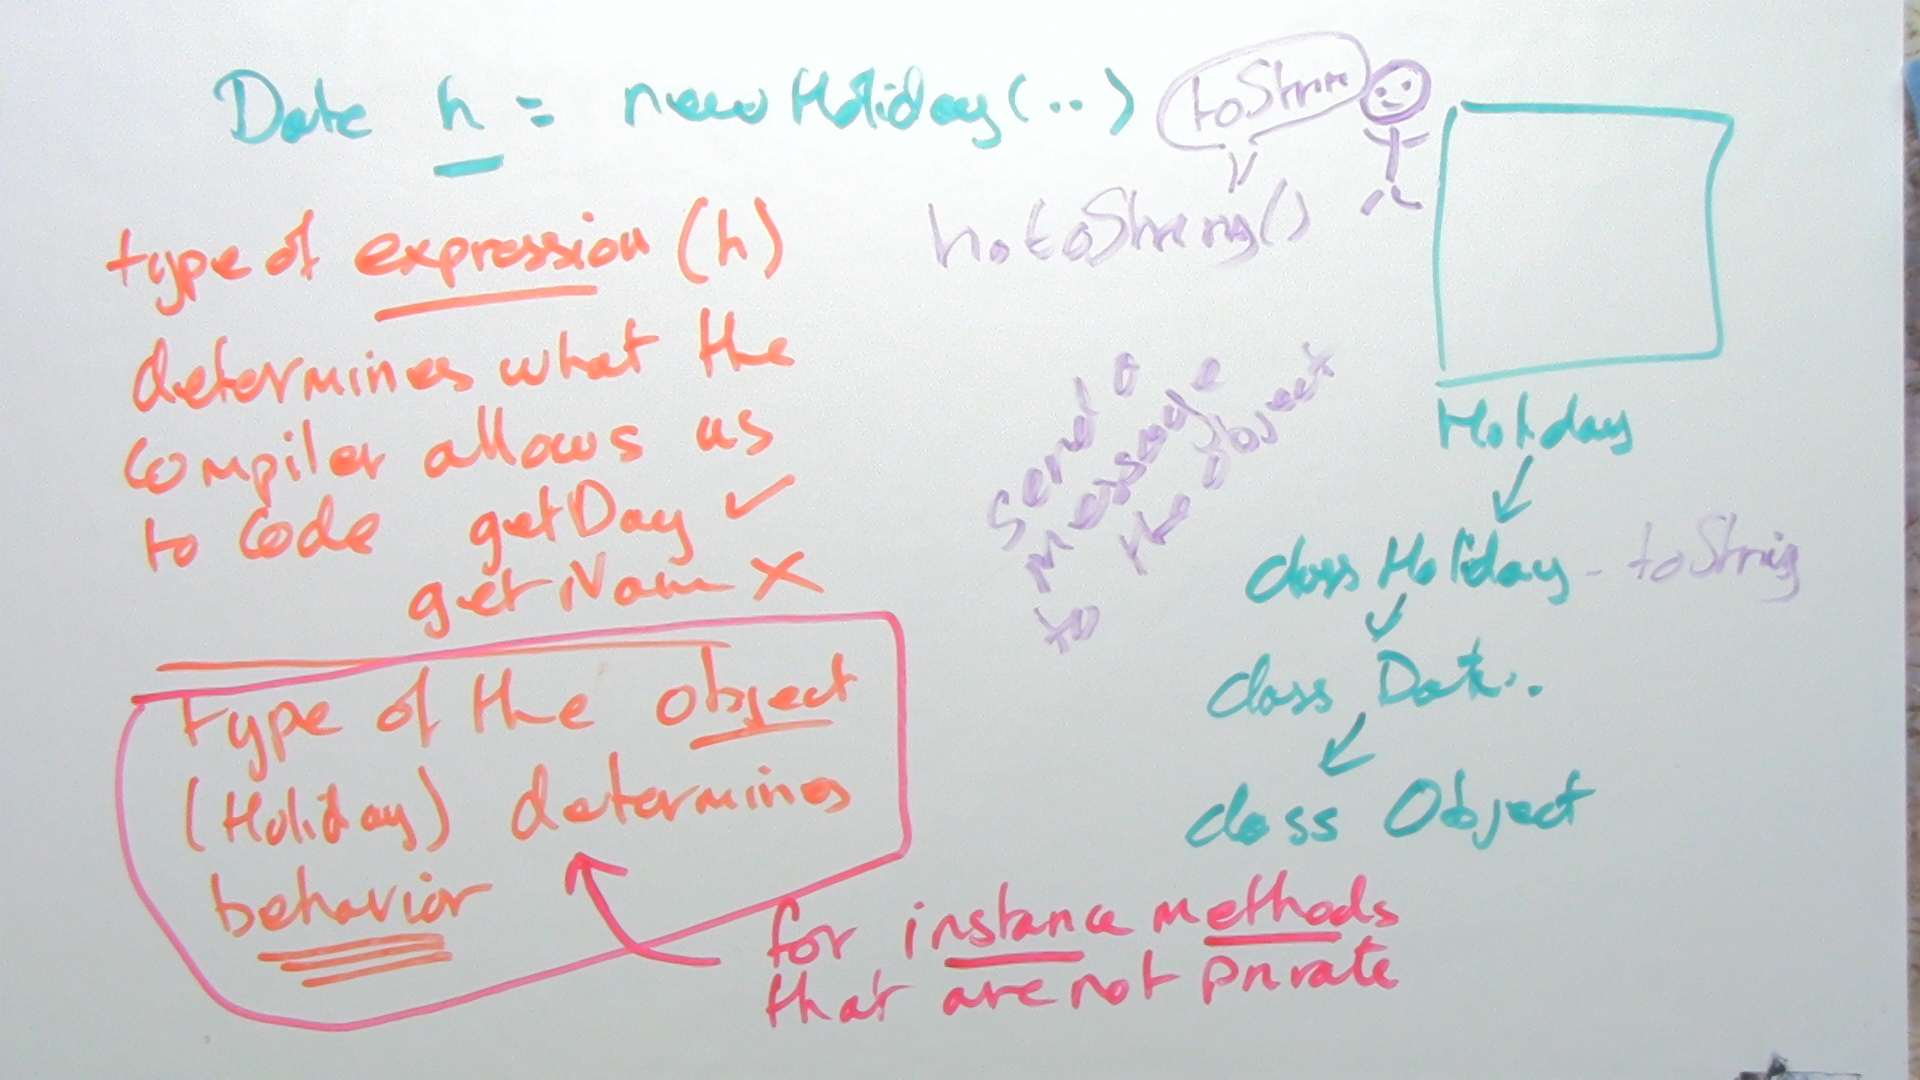 Date h = new Holiday(..)
toString
h.toString()
type of expression (h)
determines what the
compiler allows us
to code getDay ✓
getName X
Type of the object
(Holiday) determines
behavior
for instance methods
that are not private
send a
message
to the object
Holiday
class Holiday - toString
class Date..
class Object